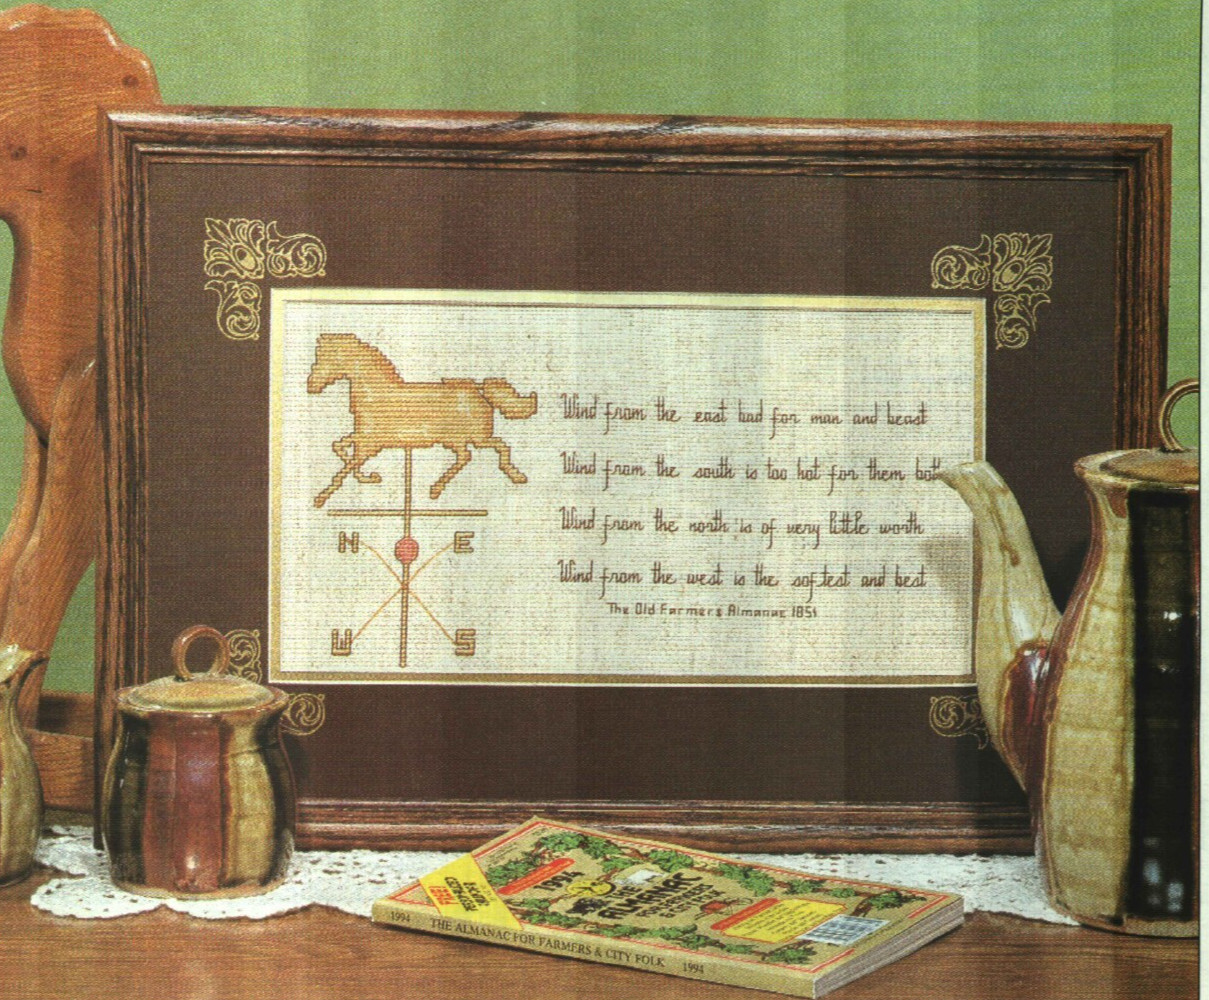 Wind from the east bad for man and beast
Wind from the south is too hot for them both
Wind from the north is of very little worth
Wind from the west is the softest and best
The Old Farmers Almanac 1851
N E
W S
1994
THE
ALMANAC
FOR FARMERS
& CITY FOLK
1994 THE ALMANAC FOR FARMERS & CITY FOLK 1994